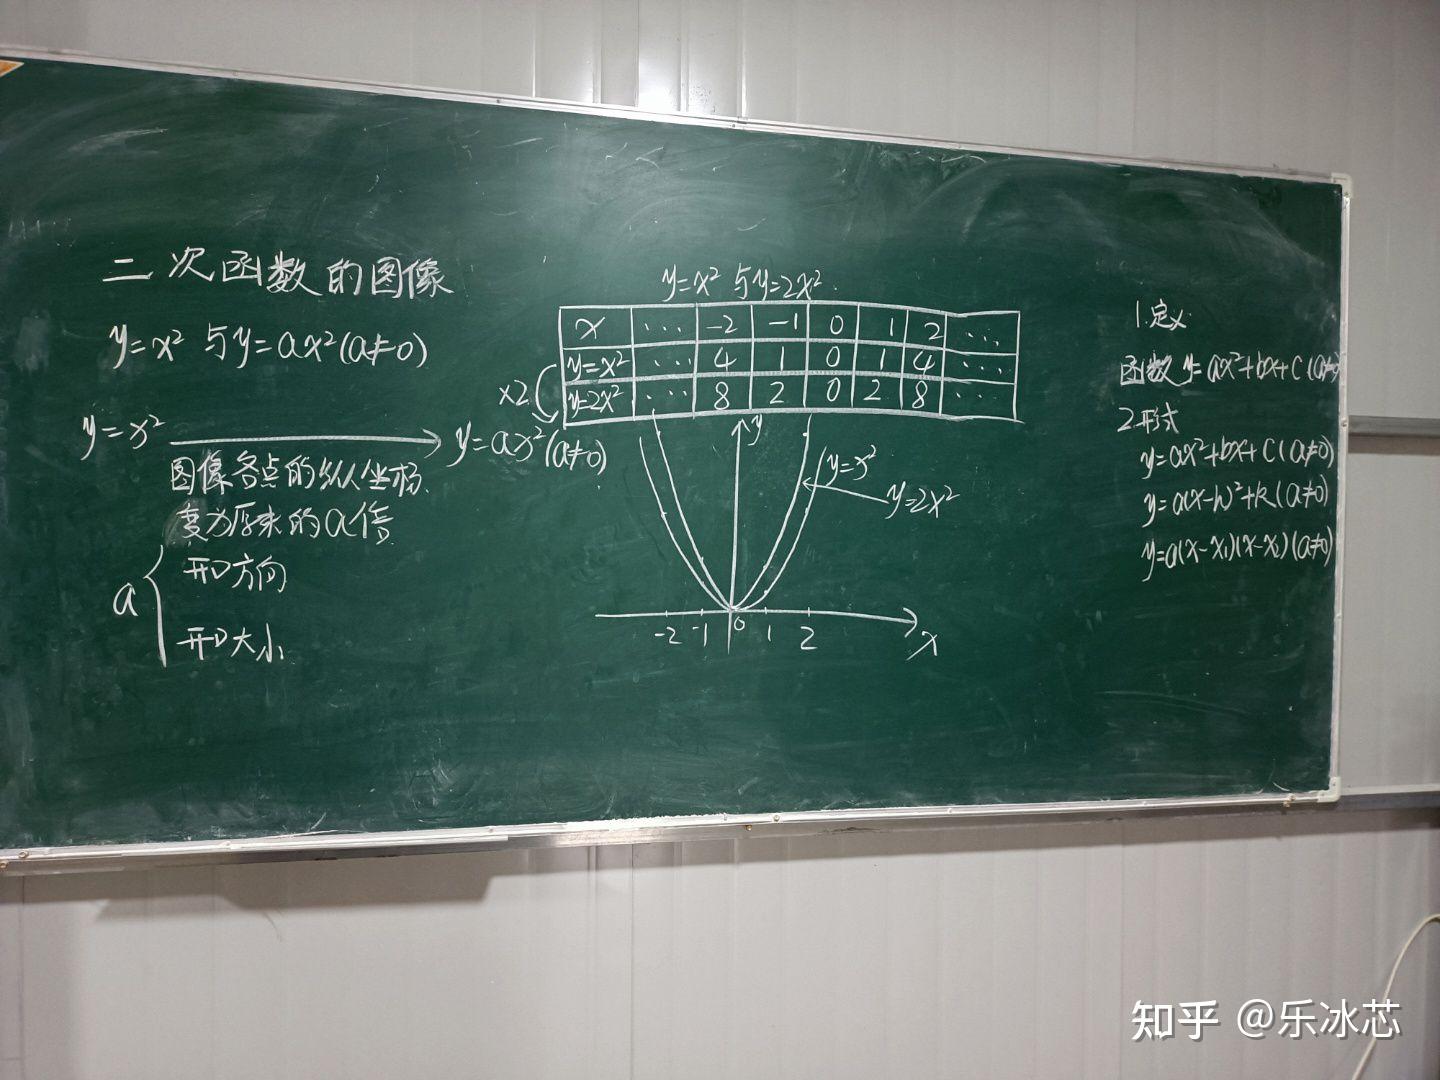 二次函数的图像
y=x² 与y=ax²(a≠0)
y=x² → y=ax²(a≠0)
图像各点的纵坐标
变为原来的a倍
a { 开口方向
开口大小
y=x² 与y=2x²
x ... -2 -1 0 1 2 ...
y=x² ... 4 1 0 1 4 ...
y=2x² ... 8 2 0 2 8 ...
×2
y
y=x²
y=2x²
-2 -1 0 1 2
x
1.定义
函数y=ax²+bx+c(a≠0)
2.形式
y=ax²+bx+c(a≠0)
y=a(x-h)²+k(a≠0)
y=a(x-x₁)(x-x₂)(a≠0)
知乎 @乐冰芯